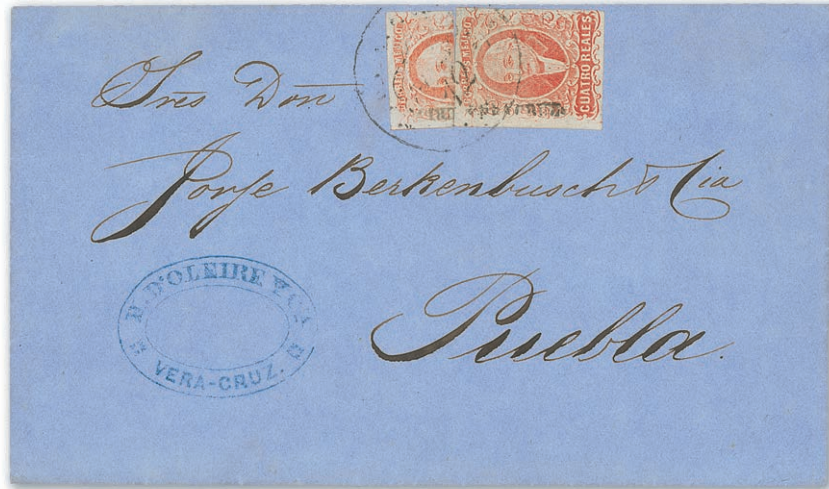 CUATRO REALES
Sres Don
Jorje Berkenbusch & Cia
Puebla.
D'OLEIRE Y Ca
VERA-CRUZ.